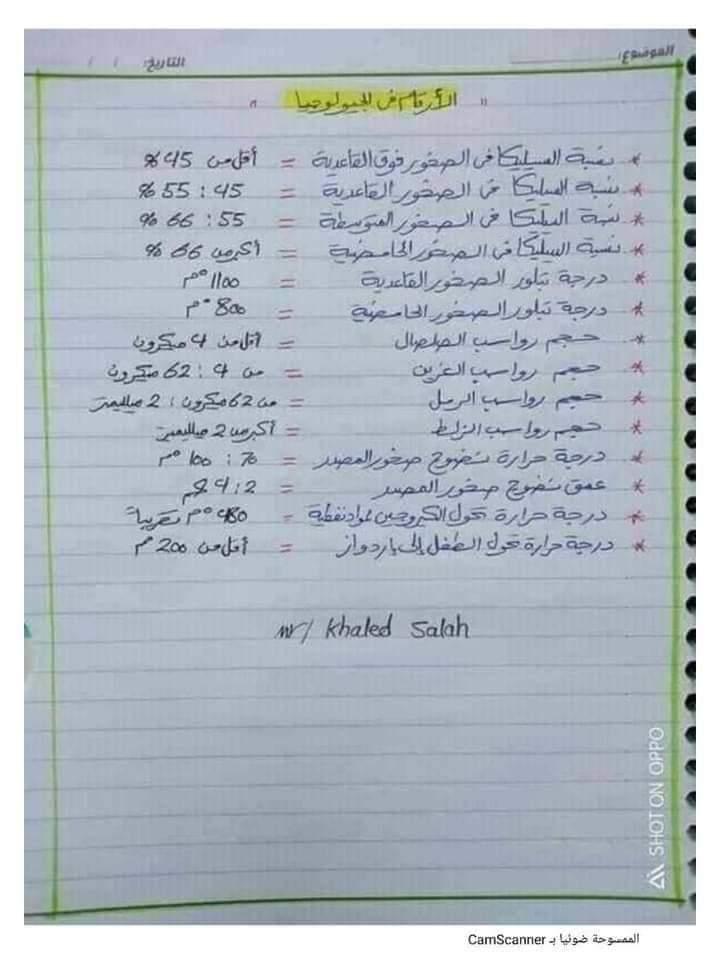 الموضوع: التاريخ: / /
" الأرقام في الجيولوجيا "
* نسبة السيليكا في الصخور فوق القاعدية = أقل من 45 %
* نسبة السيلكا في الصخور القاعدية = 45 : 55 %
* نسبة السيلكا في الصخور المتوسطة = 55 : 66 %
* نسبة السيليكا في الصخور الحامضية = أكبر من 66 %
* درجة تبلور الصخور القاعدية = 1100 °م
* درجة تبلور الصخور الحامضية = 800 °م
* حجم رواسب الصلصال = أقل من 4 ميكرون
* حجم رواسب الغرين = من 4 : 62 ميكرون
* حجم رواسب الرمل = من 62 ميكرون : 2 ميلليمتر
* حجم رواسب الزلط = أكبر من 2 ميلليمتر
* درجة حرارة نضوج صخور المصدر = 70 : 100 °م
* عمق نضوج صخور المصدر = 2 : 4 كم
* درجة حرارة تحول الكيروجين لمواد نفطية = 480 °م تقريباً
* درجة حرارة تحول الطفل إلى اردواز = أقل من 200 °م
mr/ Khaled Salah
SHOT ON OPPO
الممسوحة ضوئيا بـ CamScanner